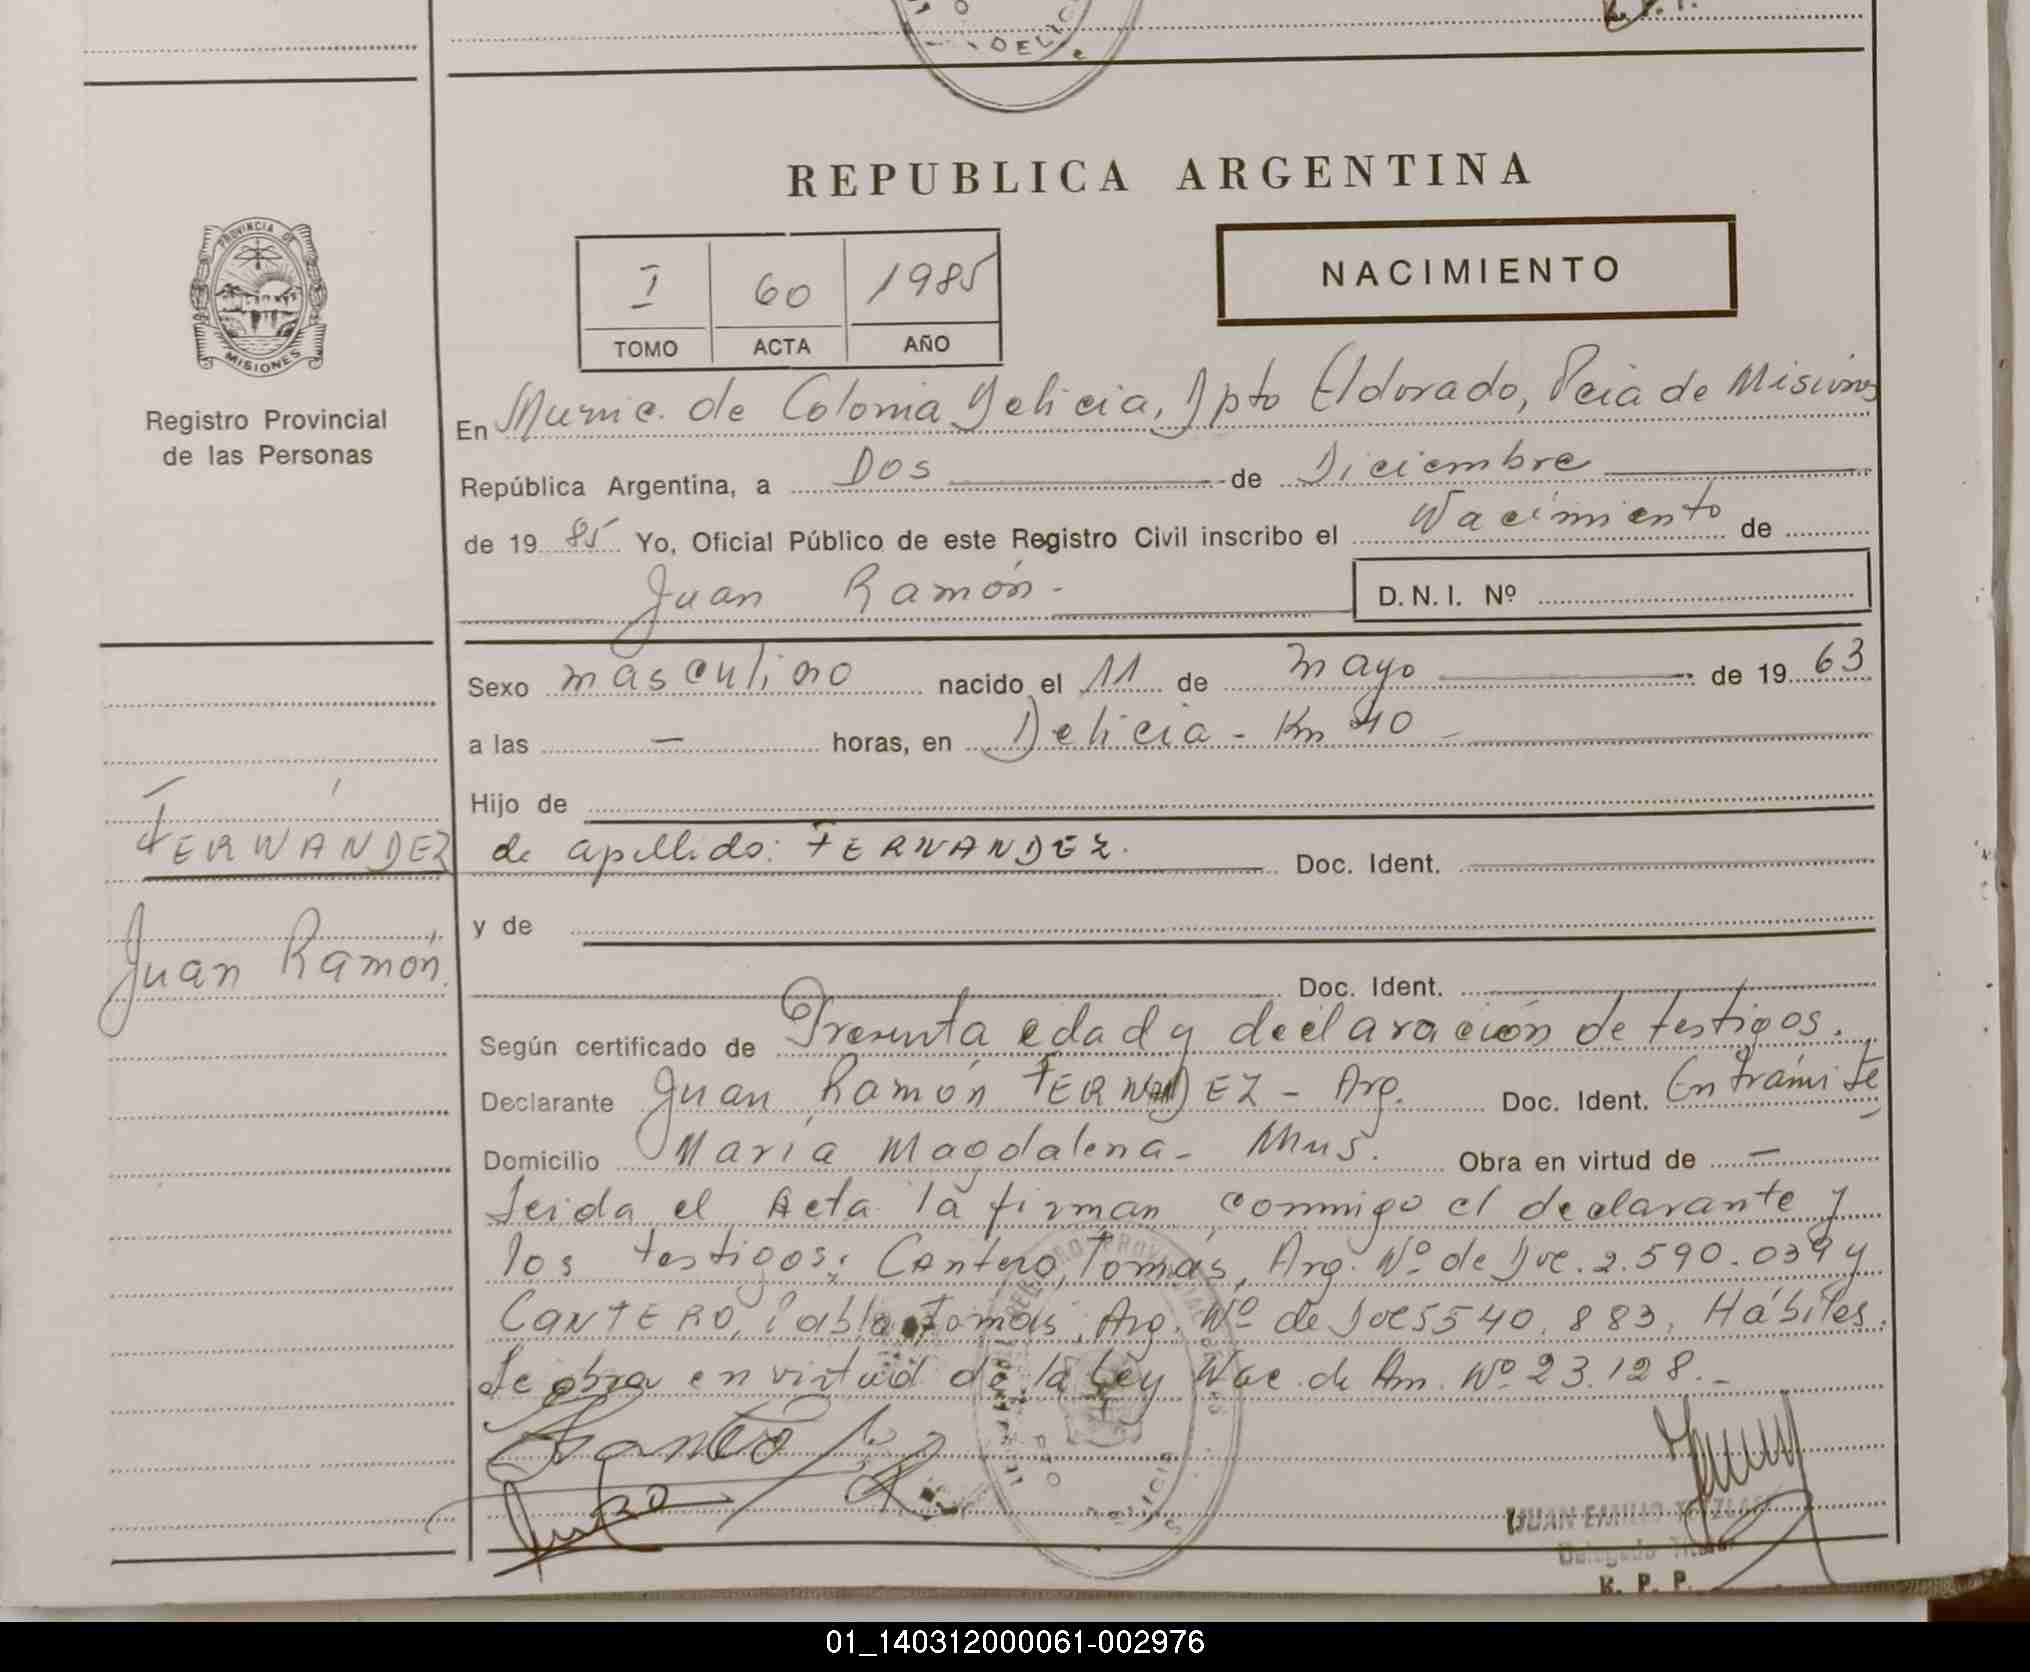 DELICIA
R. P. P.
REPUBLICA ARGENTINA
PROVINCIA DE
MISIONES
Registro Provincial
de las Personas
I 60 1985
TOMO ACTA AÑO
NACIMIENTO
En Munic. de Colonia Delicia, Dpto Eldorado, Pcia de Misiones
República Argentina, a Dos de Diciembre
de 19 85 Yo, Oficial Público de este Registro Civil inscribo el Nacimiento de
Juan Ramón - D.N.I. Nº
Sexo masculino nacido el 11 de mayo de 19 63
a las — horas, en Delicia - Km 40 -
Hijo de
FERNÁNDEZ de apellido: FERNANDEZ. Doc. Ident.
y de
Juan Ramón.
Doc. Ident.
Según certificado de Presunta edad y declaración de testigos.
Declarante Juan Ramón FERNANDEZ - Arg. Doc. Ident. En trámite
Domicilio María Magdalena - Mnes. Obra en virtud de —
Leida el Acta la firman conmigo el declarante y
los testigos: Cantero, Tomás, Arg. Nº de Doc. 2.590.039 y
CANTERO, Pablo Tomás, Arg. Nº de Doc 5540.883, Hábiles.
Se obra en virtud de la Ley Nac. de Am. Nº 23.128.-
REGISTRO PROVINCIAL
DELICIA
JUAN EMILIO
Delegado Titular
R. P. P.
01_140312000061-002976